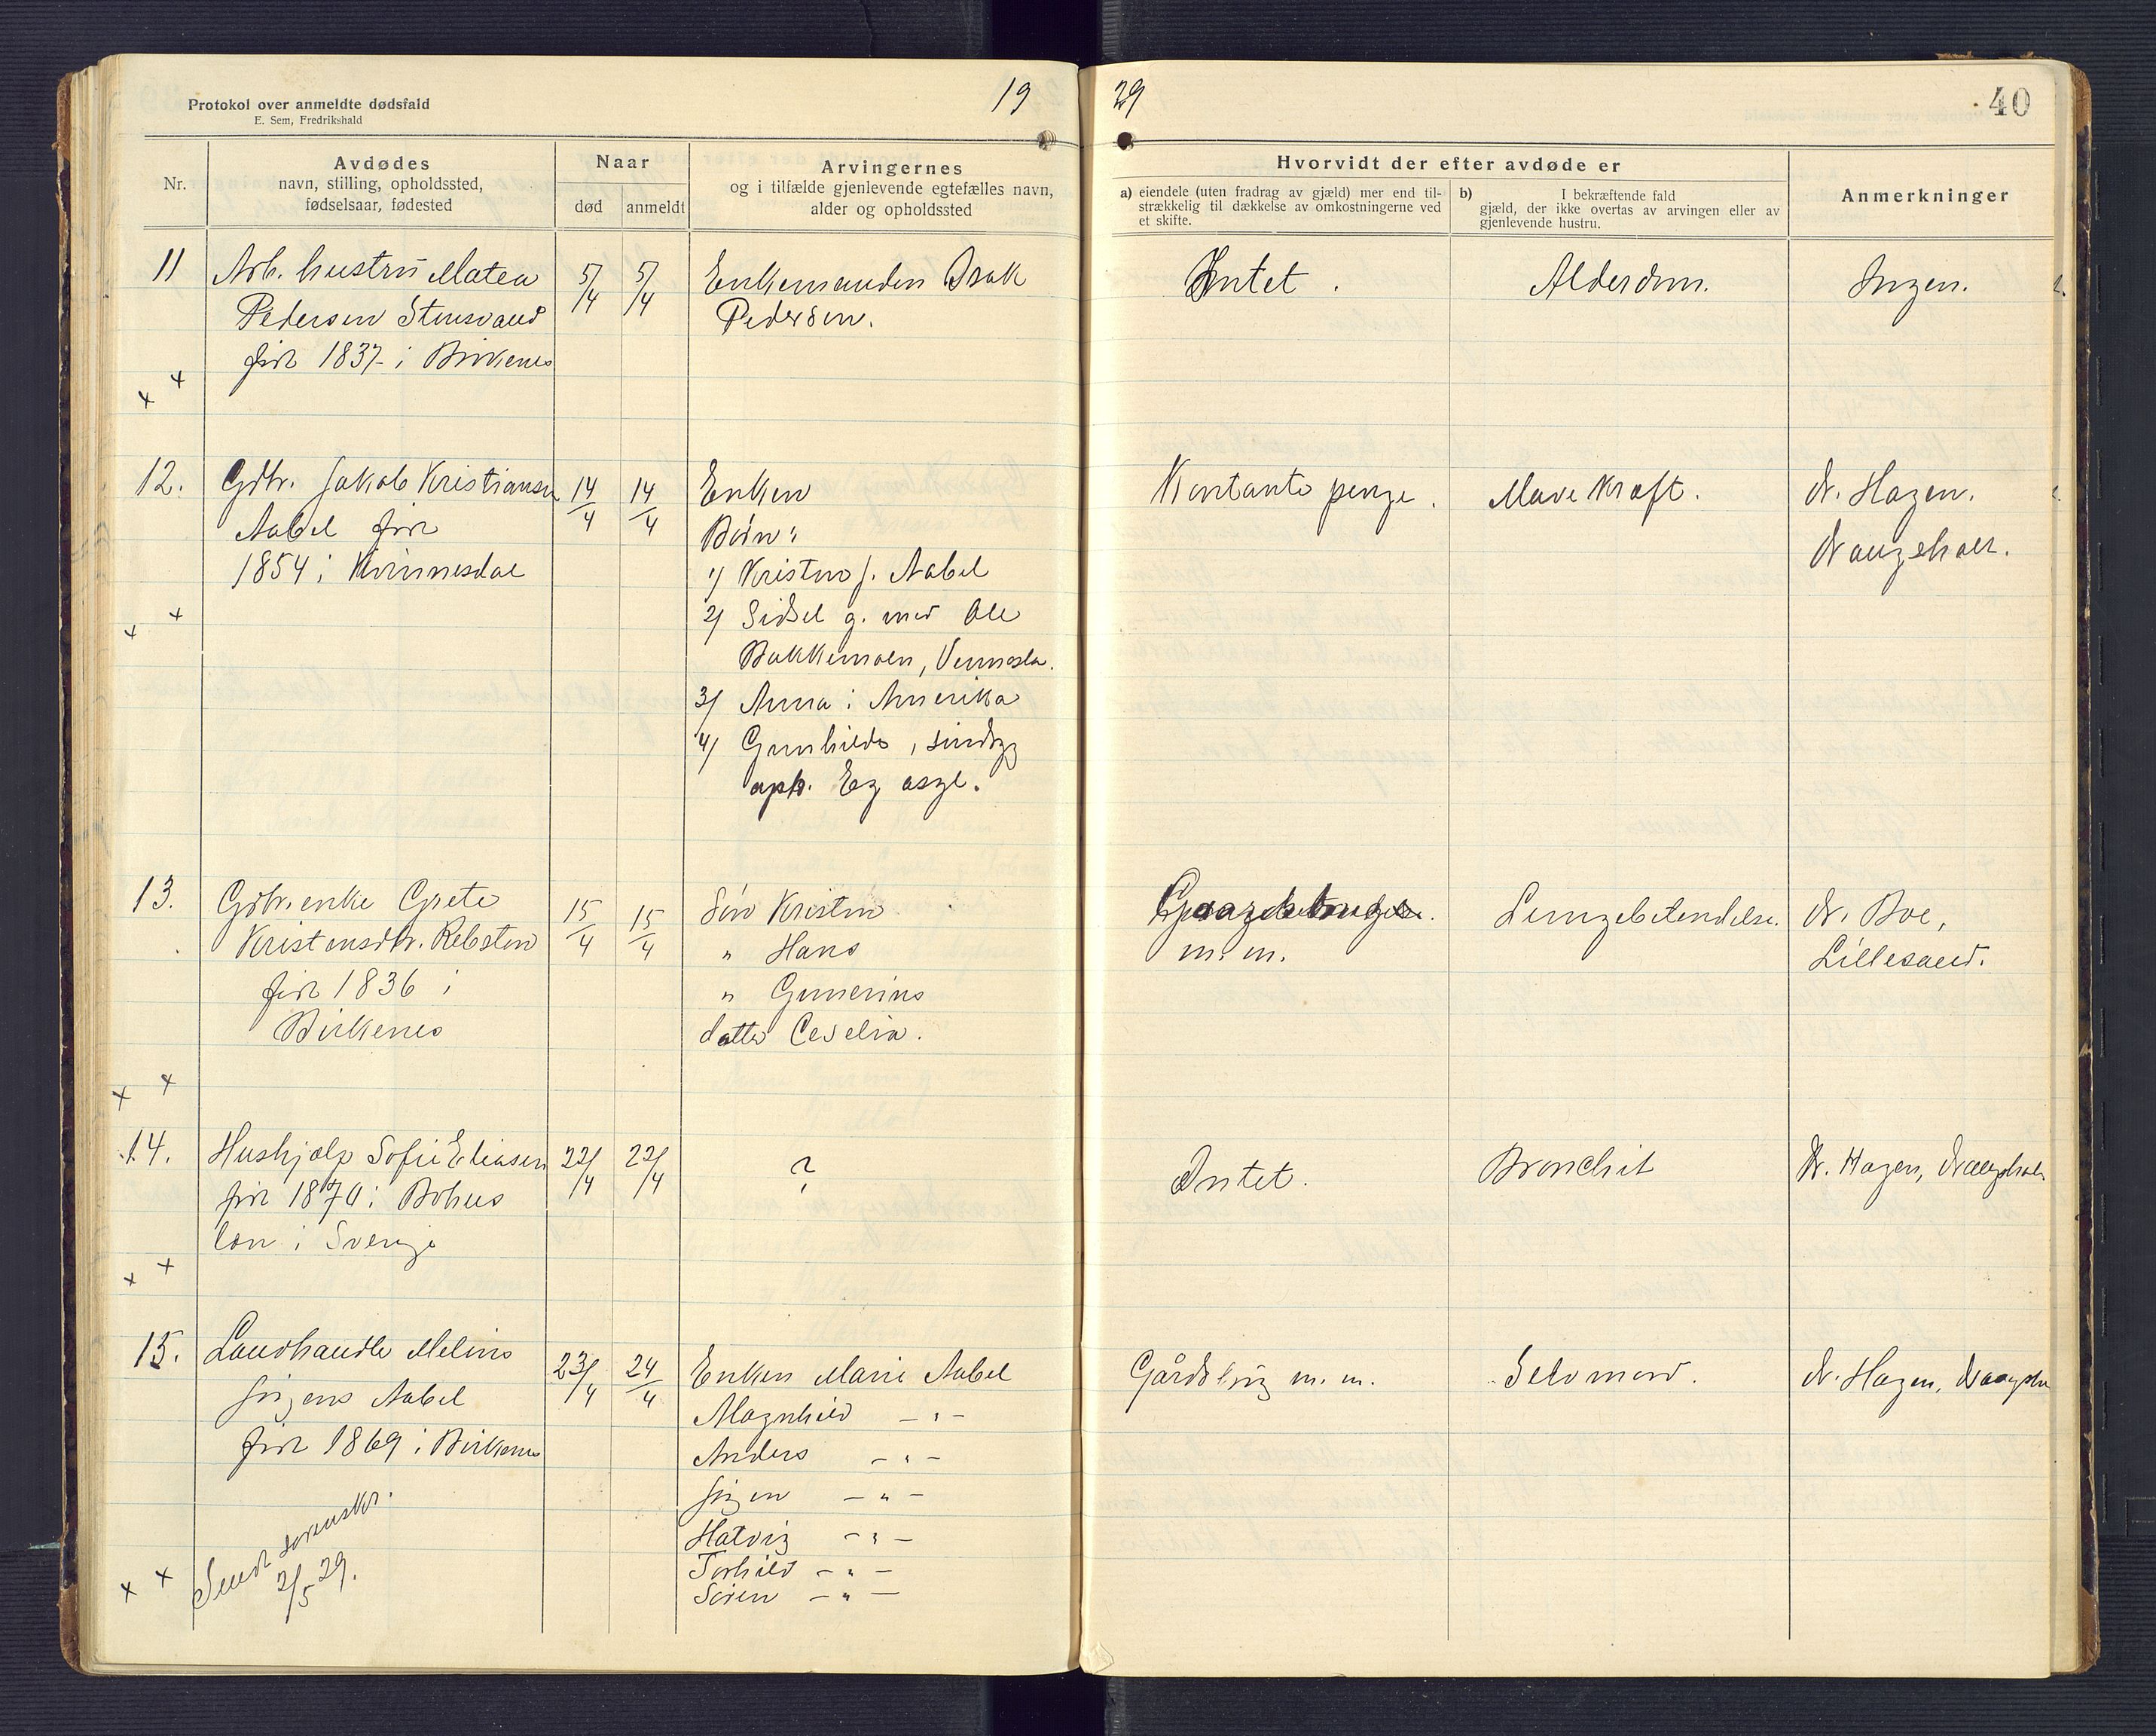 Protokol over anmeldte dødsfald
E. Sem, Fredrikshald
19 29
40
Nr.
Avdødes
navn, stilling, opholdssted,
fødselsaar, fødested
Naar
død
anmeldt
Arvingernes
og i tilfælde gjenlevende egtefælles navn,
alder og opholdssted
Hvorvidt der efter avdøde er
a) eiendele (uten fradrag av gjæld) mer end til-
strækkelig til dækkelse av omkostningerne ved
et skifte.
b) I bekræftende fald
gjæld, der ikke overtas av arvingen eller av
gjenlevende hustru.
Anmerkninger
11
Arb. hustru Matea
Pedersen Stensvand
född 1837 i Birkenes
5/4
5/4
Enkemanden Isak
Pedersen.
Intet.
Alderdom.
Ingen.
12.
Gdbr. Jakob Kristiansen
Aabel
1854 i Kvinnesdal
14/4
14/4
Enken
Børn:
1) Kristen J. Aabel
2) Sidsel g. med Ole
Bakkemoen, Vennesla.
3) Anna i Amerika
4) Gunhilde, sindsyg
oph. Eg asyl.
Kontante penge.
Mavekræft.
dr. Hagen.
Naugsholt.
13.
Gdbr.enke Grete
Kristensdtr. Rebsten
1836 i
Birkenes
15/4
15/4
Søn Kristen
" Hans
" Gunerius
datter Ceselia.
m.m.
Lungebetendelse.
dr. Boe,
Lillesand.
14.
Hushjælp Sofie Eliasen
1870 i Bohus
län i Sverige
22/4
22/4
?
Intet.
Bronchit
dr. Hagen,
15.
Landhandler Melius
Jørgens Aabel
1869 i Birkenes
23/4
24/4
Enken Marie Aabel
Magnhild - " -
Anders - " -
Jørgen - " -
Hatvig - " -
Torhild - " -
Søren - " -
Gårdsbrug m.m.
Selvmord.
dr. Hagen,
Sendt sorenskr.
2/5 29.